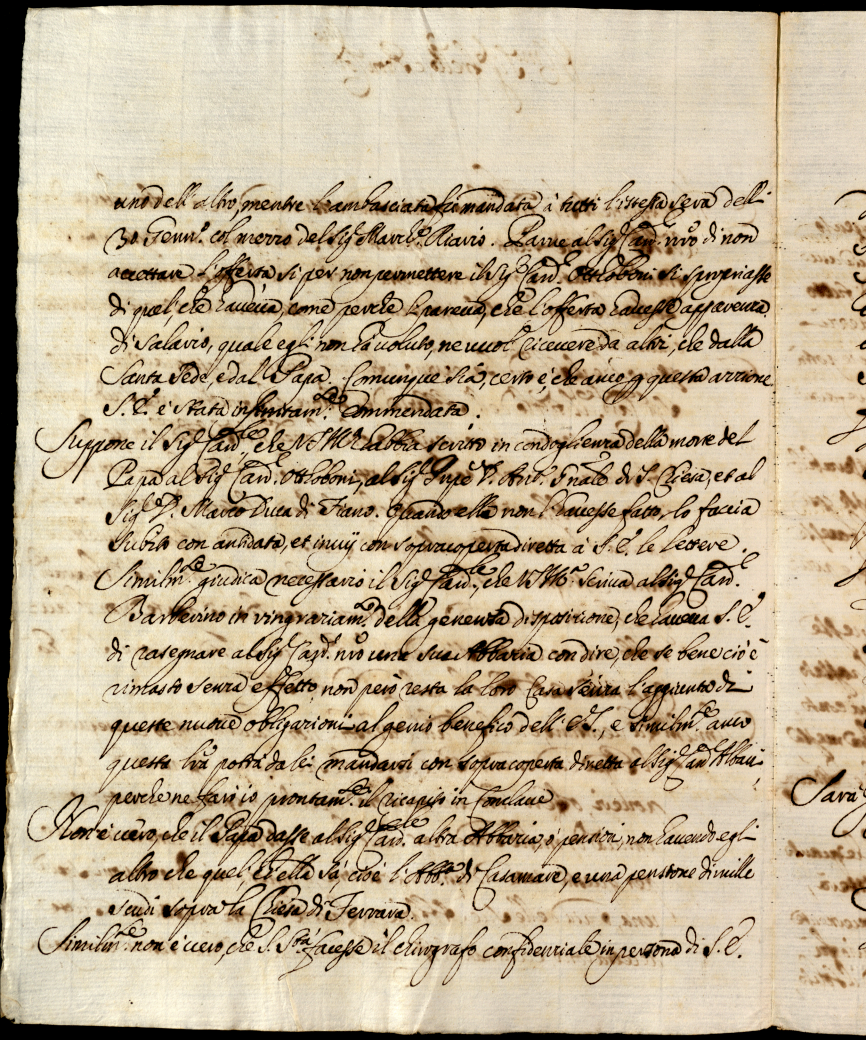 uno dell'altro, mentre l'ambasciata fù mandata à tutti l'istessa sera delli
30. Genn.º col mezzo del Sig.r March.e Riario. Parue al Sig.r Card.le nrõ di non
accettare l'offerta si per non permettere il Sig.r Card.le Otthoboni si spropriasse
di quel che haueua, come perche le pareua, che l'offerta hauesse apparenza
di salario, quale egli non hà voluto, ne vuol riceuere da altri, che dalla
Santa Sede, e dal Papa. Comunque sia, certo è, che anco p questa azzione
S. E. è stata infinitam.te commendata.
Suppone il Sig.r Card.le, che V.S. Ill.ma habbia scritto in condoglienza della morte del
Papa al Sig.r Card.le Otthoboni, al Sig.r D. Ant.º Gnãle di S. Chiesa, et al
Sig.r D. Marco Duca di Fiano. Quando ella non l'hauesse fatto, lo faccia
subito con antidata, et inuij con sopracoperta diretta à S. E. le lettere.
Similm.te giudica necessario il Sig.r Card.le, che V.S. Ill.ma scriua al Sig.r Card.le
Barberino in ringratiam.to della generosa dispositione, che haueua S. E.
di rasegnare al Sig.r Card.le nrõ una sua Abbatia con dire, che se bene ciò è
rimasto senza effetto, non però resta la loro Casa senza l'aggiunta di
queste nuoue obligationi al genio benefico dell'E. S., e similm.te anco
questa lrã potrà da lei mandarsi con sopracoperta diretta al Sig.r Card.le Albani
perche ne farò io prontam.te il ricapito in Conclaue.
Non è uero, che il Papa dasse al Sig.r Card.le altra Abbatia, ò pensioni, non hauendo egli
altro che quel, ch'ella sà, cioè l'Abb.a di Casamare, e una pensione di mille
scudi sopra la Chiesa di Ferrara.
Similm.te non è uero, che S. S.tà facesse il chirografo confidentiale in persona di S. E.